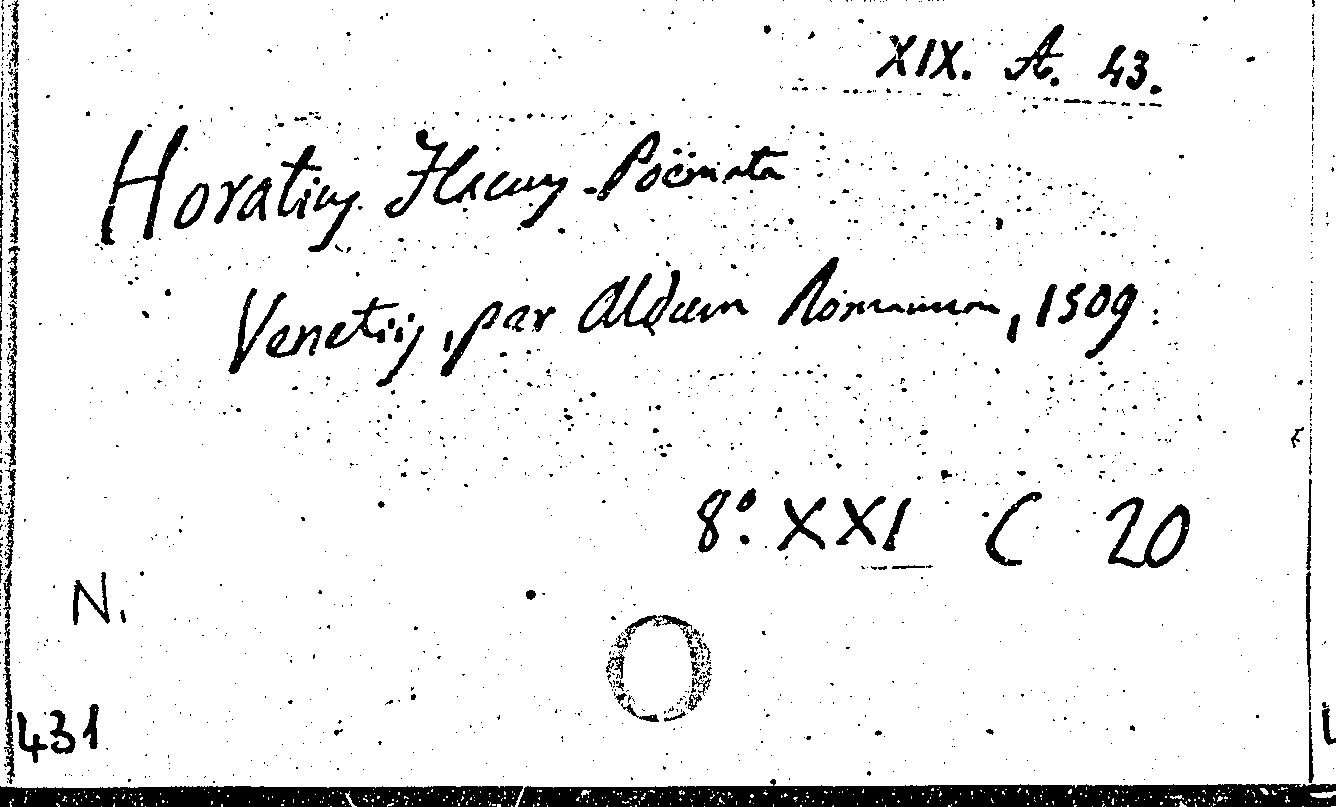 XIX. A. 43.
Horatius Flaccus Poëmata
Venetiis, par Aldum Romanum, 1509.
8º. XXI C 20
N.
O
431